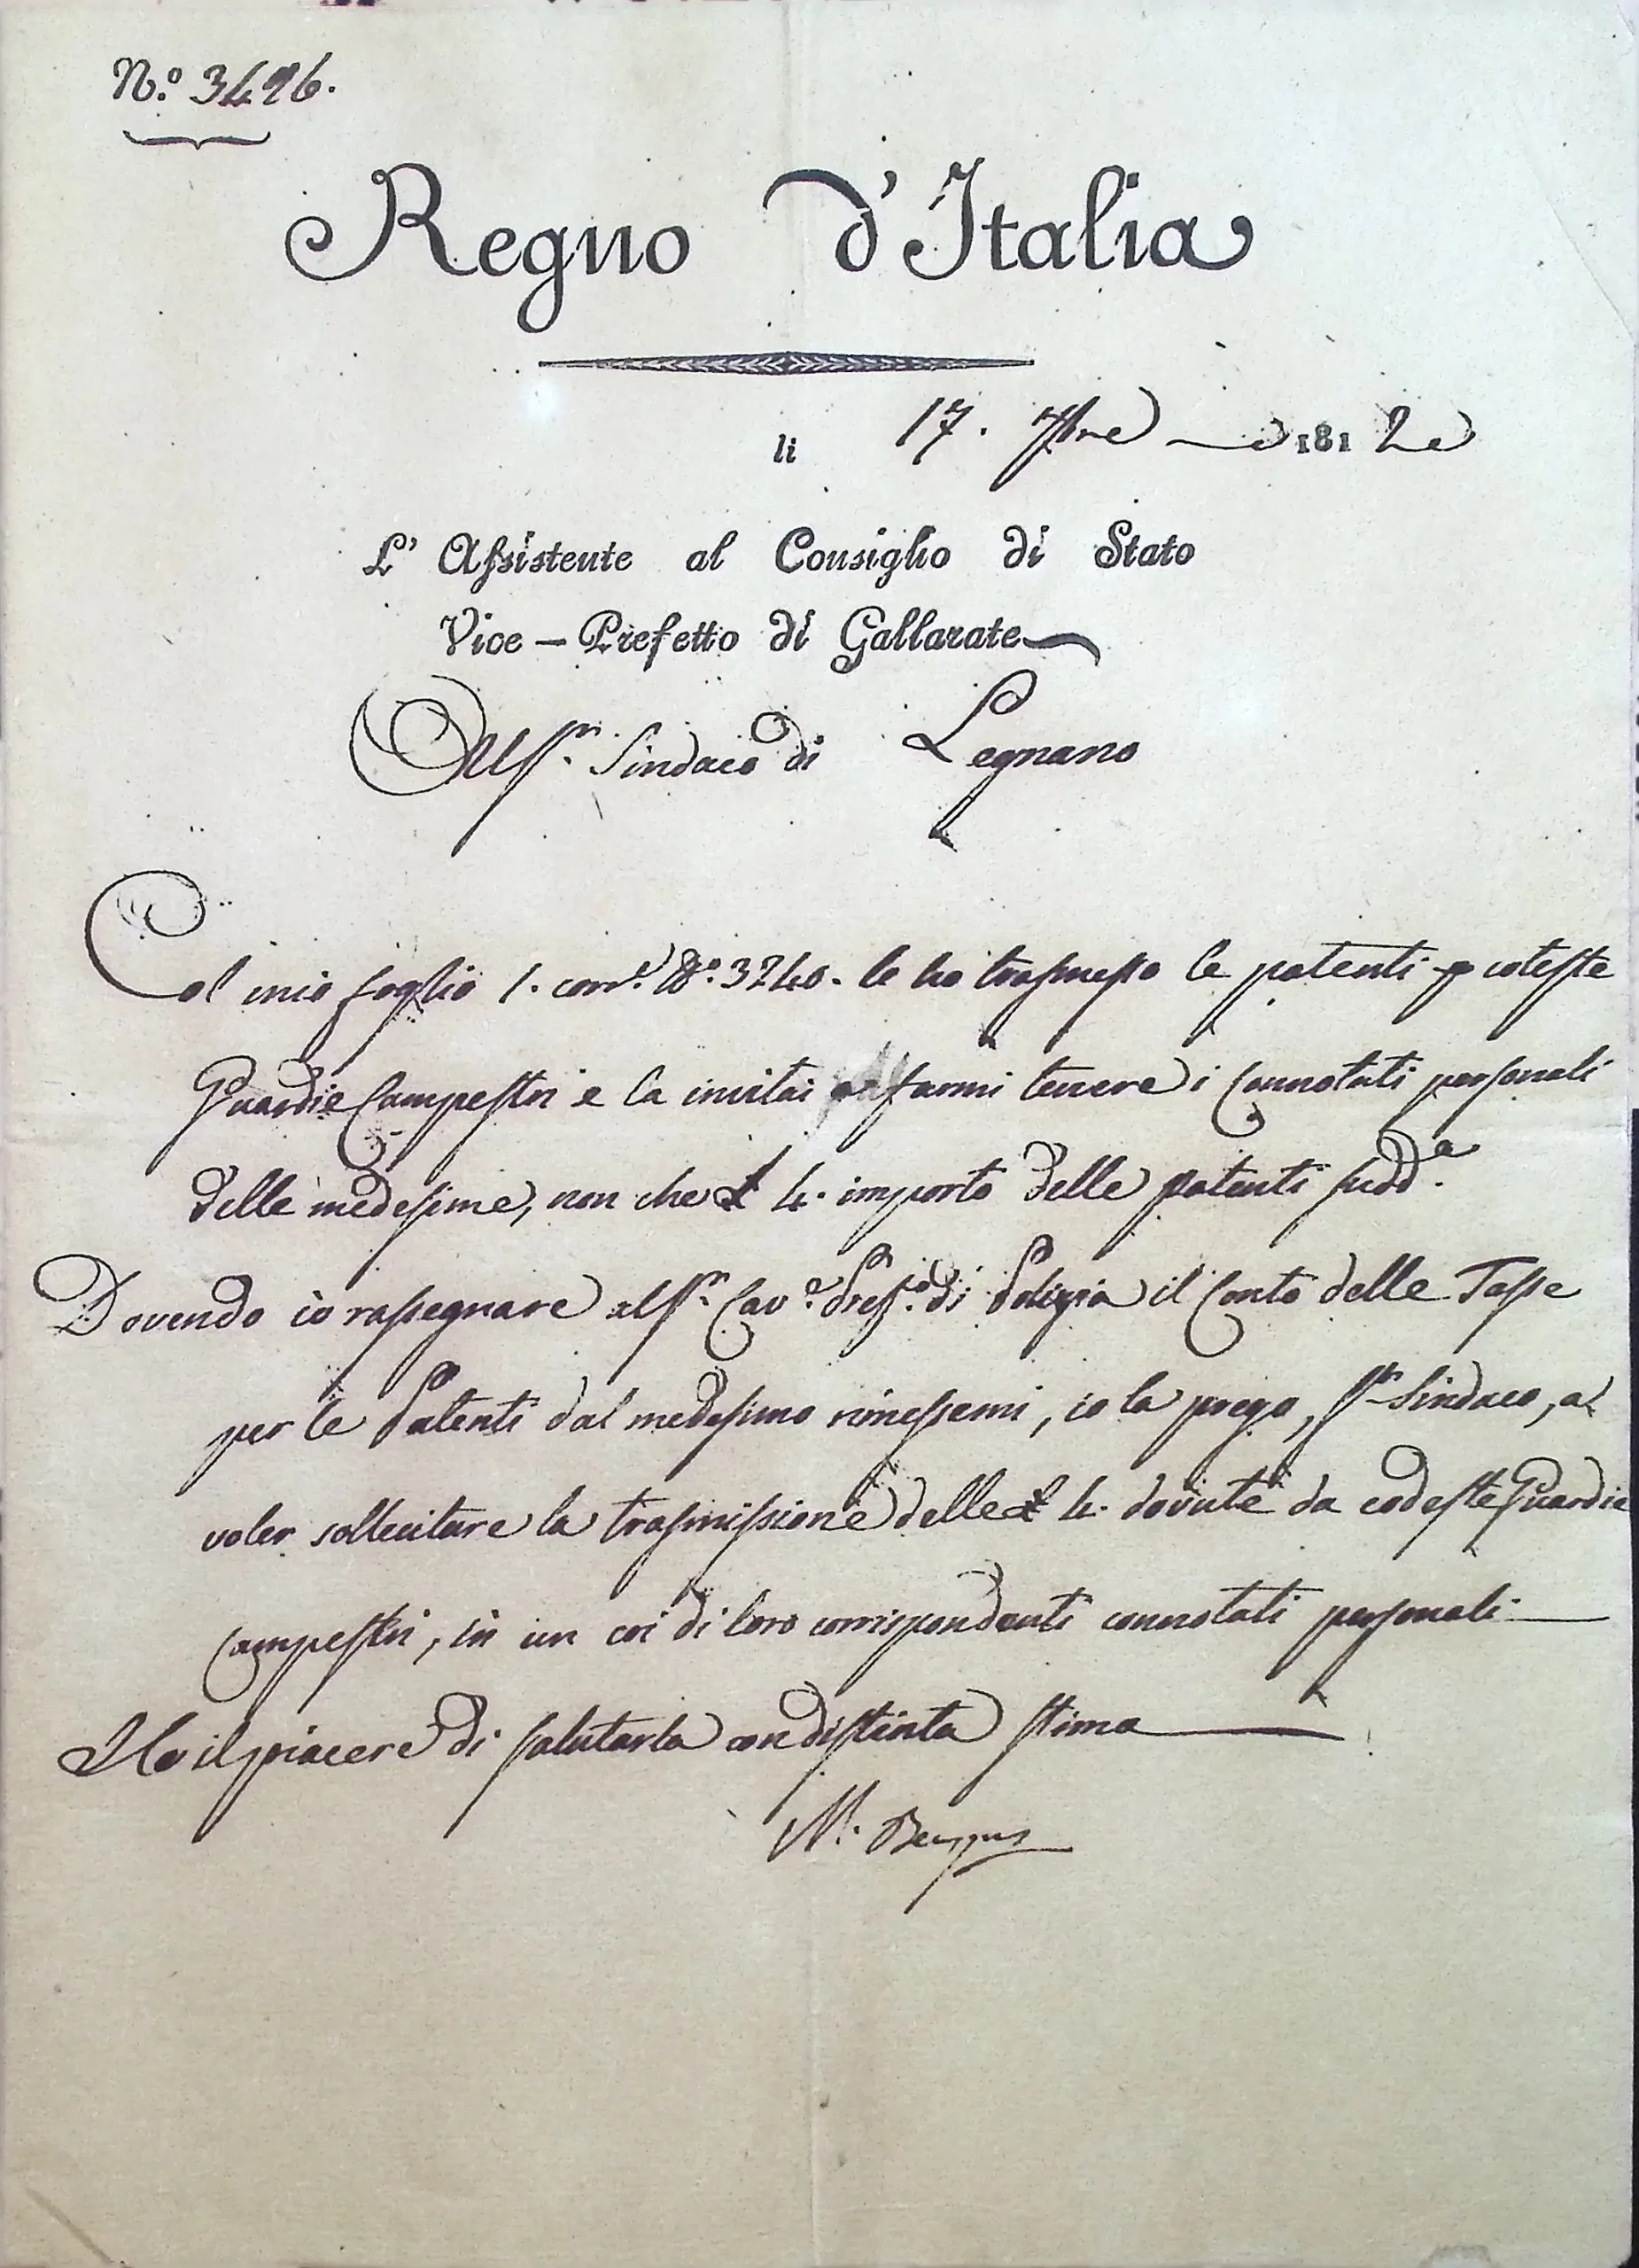 N.º 3496.
Regno d'Italia
li 17. 7bre 1812
L'Assistente al Consiglio di Stato
Vice-Prefetto di Gallarate
Al Sr. Sindaco di Legnano
Col mio foglio 1. corr.e N.º 3240. le ho trasmesso le patenti p coteste
Guardie Campestri e la invitai a farmi tenere i connotati personali
delle medesime, non che £ 4. importo delle patenti sudd.e
Dovendo io rassegnare al Sr. Cav.e Pref.º di Polizia il Conto delle Tasse
per le Patenti dal medesimo rimessemi, io la prego, Sr Sindaco, a
voler sollecitare la trasmissione delle £ 4. dovute da codeste Guardie
campestri, in un coi di loro corrispondenti connotati personali
Ho il piacere di salutarla con distinta stima